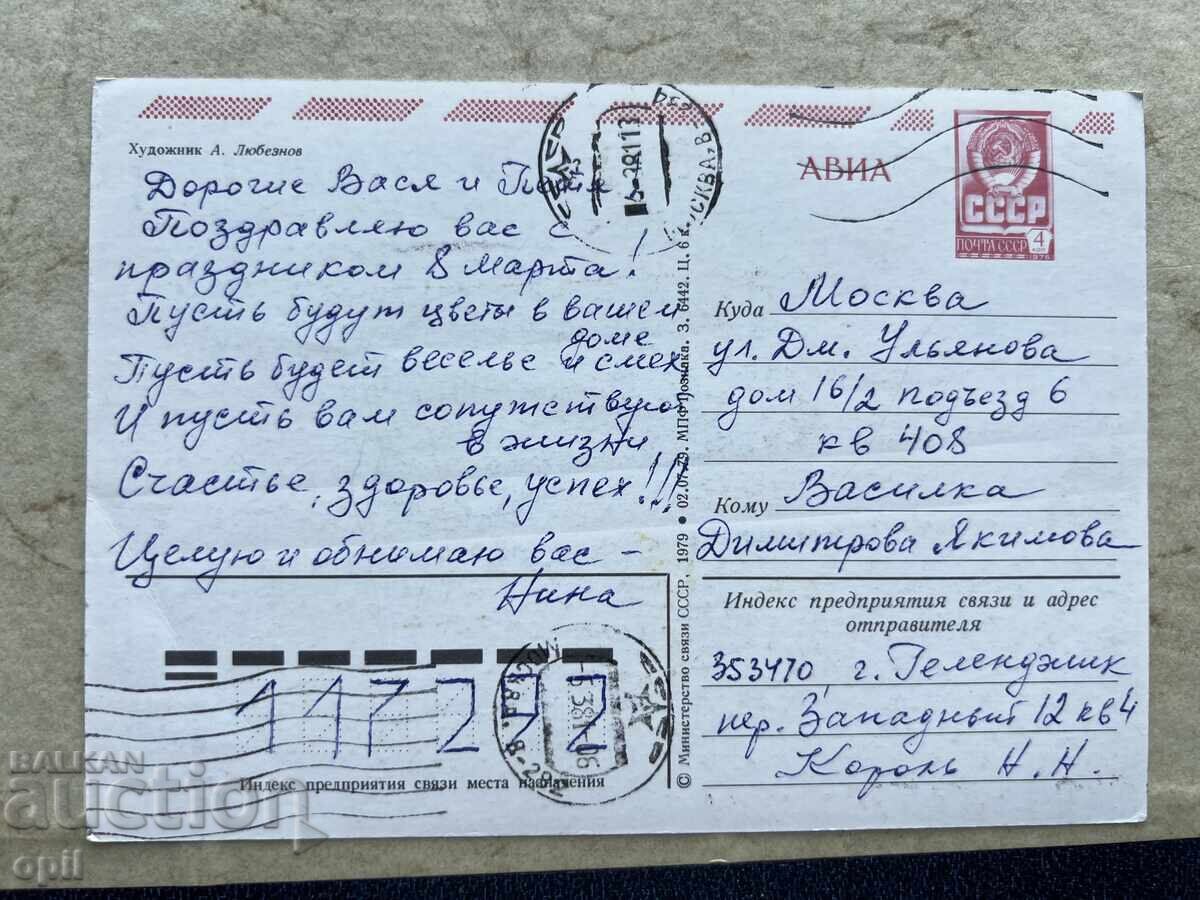 Художник А. Любезнов
Дорогие Вася и
Поздравляю вас с
праздником 8 Марта!
Пусть будут цветы в вашем
доме
Пусть будет веселье и смех
И пусть вам сопутствуют
в жизни
Счастье, здоровье, успех!!!
Целую и обнимаю вас –
Нина
117292
Индекс предприятия связи места назначения
© Министерство связи СССР, 1979 • 02.07.79. МПФ Гознака. З. 6442. Ц. 6 к.
АВИА
СССР
ПОЧТА СССР 4 коп
1976
Куда Москва
ул. Дм. Ульянова
дом 16/2 подъезд 6
кв 408
Кому Василка
Димитрова Якимова
Индекс предприятия связи и адрес
отправителя
353470, г. Геленджик
пер. Западный 12 кв 4
Король Н. Н.
МОСКВА
BALKAN
auction
opil